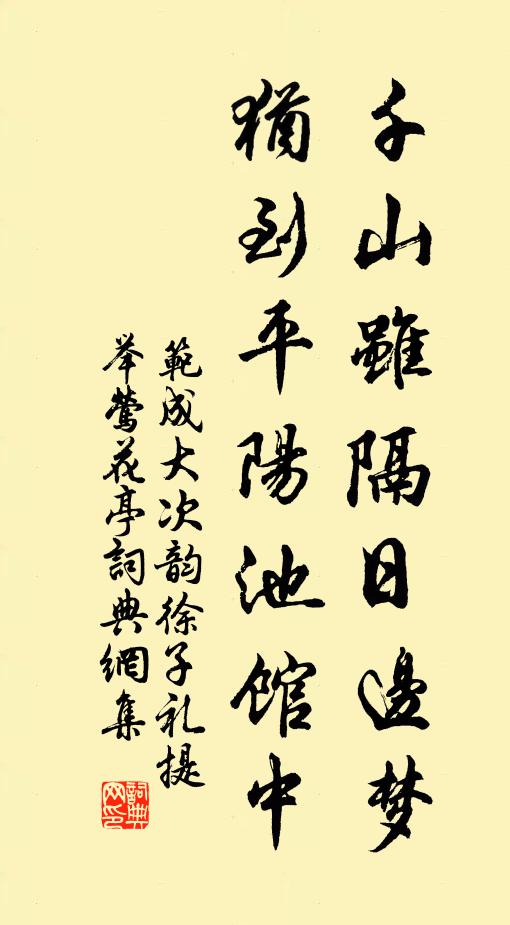 千山雖隔日邊夢
猶到平陽池館中
範成大次韵徐子礼提
举鶯花亭詞典網集
詞典网印